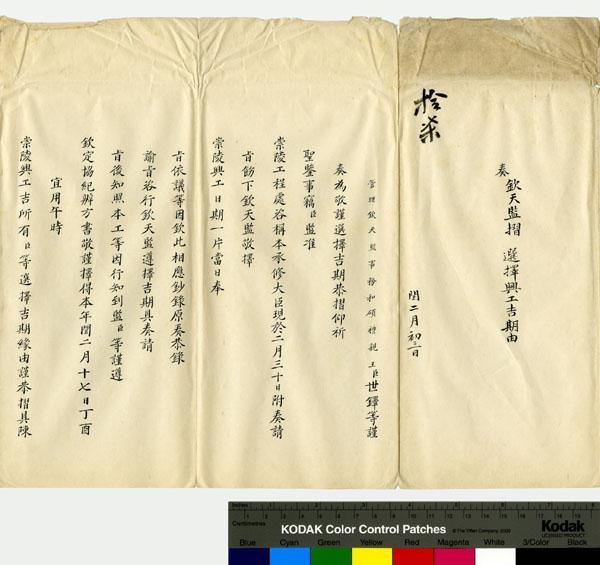 拾柒
奏
欽天監摺 選擇興工吉期由
閏二月初二日
管理欽天監事務和碩禮親王臣世鐸等謹
奏為敬謹選擇吉期恭摺仰祈
聖鑒事竊臣監准
崇陵工程處咨稱本承修大臣現於二月三十日附奏請
旨飭下欽天監敬擇
崇陵興工日期一片當日奉
旨依議等因欽此相應鈔錄原奏恭錄
諭旨咨行欽天監遵擇吉期具奏請
旨後知照本工等因行知到監臣等謹遵
欽定協紀辨方書敬謹擇得本年閏二月十七日丁酉
宜用午時
崇陵興工吉所有臣等選擇吉期緣由謹恭摺具陳
Inches
Centimetres
KODAK Color Control Patches
© The Tiffen Company, 2000
Kodak
LICENSED PRODUCT
Blue Cyan Green Yellow Red Magenta White 3/Color Black